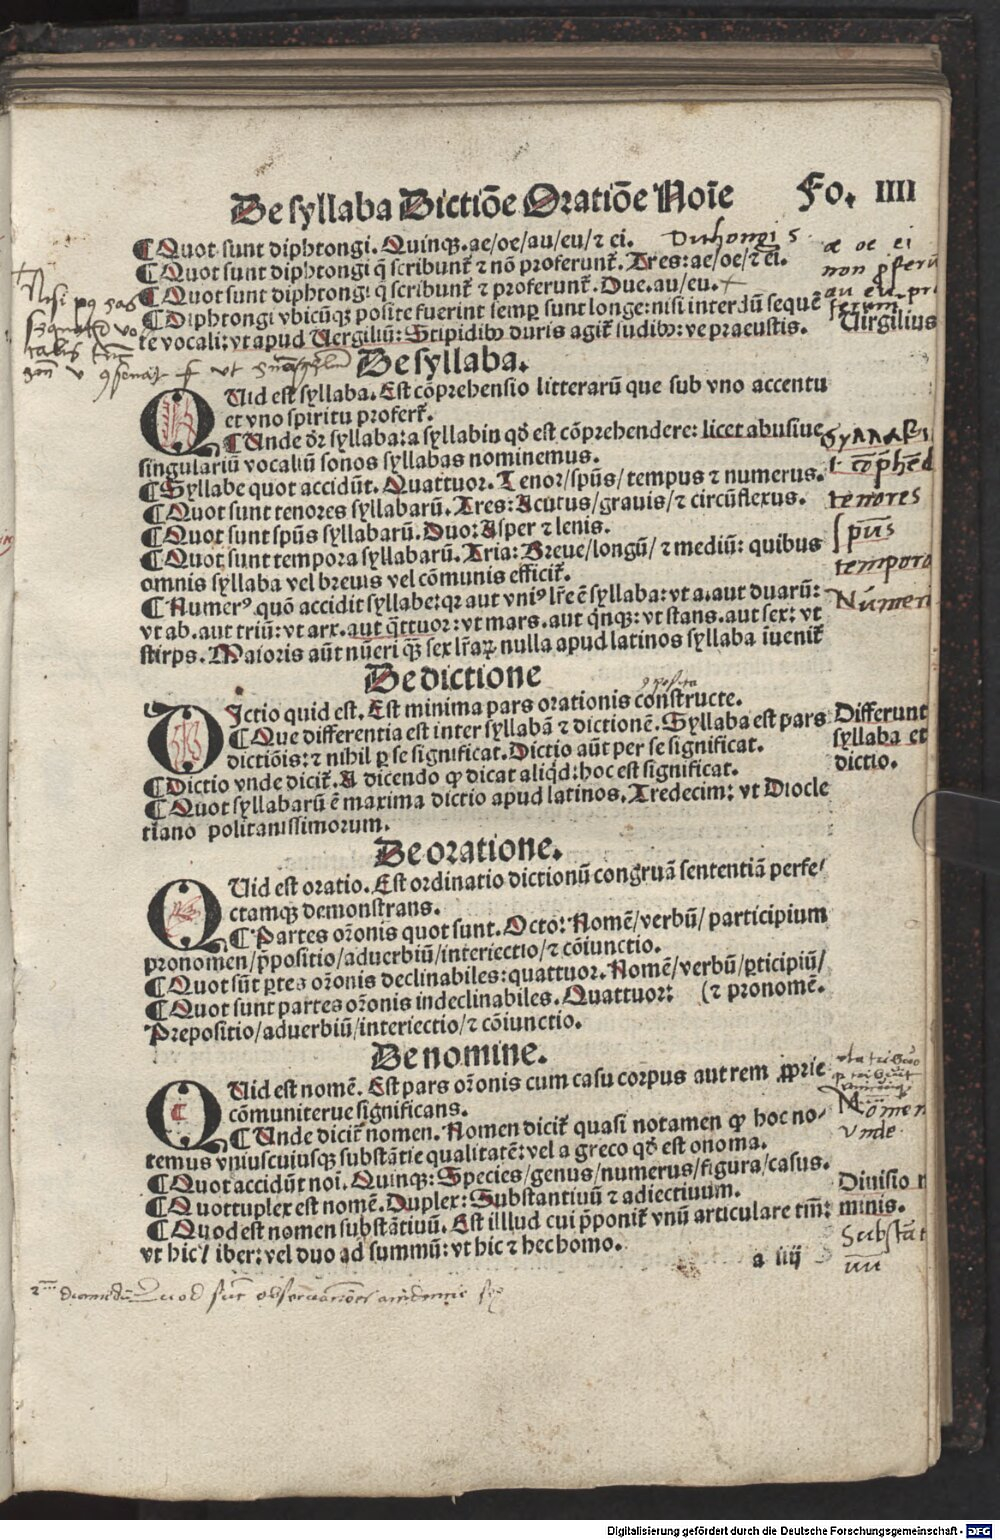 De syllaba Dictiōe Oratiōe Noīe Fo. IIII
¶ Quot sunt diphtongi. Quinqꝫ. ae/oe/au/eu/ ⁊ ei.
¶ Quot sunt diphtongi q̄ scribunt᷑ ⁊ nō proferunt᷑. Tres: ae/oe/⁊ ei.
¶ Quot sunt diphtongi q̄ scribunt᷑ ⁊ proferunt᷑. Due. au/eu.
¶ Diphtongi vbicūqꝫ posite fuerint semꝑ sunt longe: nisi interdū sequēte
te vocali: vt apud Uergiliū: Stipidibꝰ duris agit᷑ sudibꝰ: ve praeustis.
Uirgilius
De syllaba.
QUid est syllaba. Est cōprehensio litterarū que sub vno accentu
et vno spiritu profert᷑.
¶ Unde dr̄ syllaba: a syllabin qd̄ est cōprehendere: licet abusiue
singulariū vocaliū sonos syllabas nominemus.
¶ Syllabe quot accidūt. Quattuor. Tenor/spūs/tempus ⁊ numerus.
¶ Quot sunt tenores syllabarū. Tres: Acutus/grauis/⁊ circūflexus.
¶ Quot sunt spūs syllabarū. Duo: Asper ⁊ lenis.
¶ Quot sunt tempora syllabarū. Tria: Breue/longū/ ⁊ mediū: quibus
omnis syllaba vel breuis vel cōmunis efficit᷑.
¶ Numerꝰ quō accidit syllabe: qꝛ aut vniꝰ lr̄e ē syllaba: vt a. aut duarū:
vt ab. aut triū: vt arx. aut q̄ttuor: vt mars. aut q̄nqꝫ: vt stans. aut sex: vt
stirps. Maioris aūt nūeri qꝫ̄ sex lr̄aꝝ nulla apud latinos syllaba īuenit᷑
De dictione
DIctio quid est. Est minima pars orationis constructe.
¶ Que differentia est inter syllabā ⁊ dictionē. Syllaba est pars
dictiōis: ⁊ nihil ꝑ se significat. Dictio aūt per se significat.
Differunt
syllaba et
dictio.
¶ Dictio vnde dicit᷑. A dicendo ꝙ dicat aliqd̄: hoc est significat.
¶ Quot syllabarū ē maxima dictio apud latinos. Tredecim: vt Diocle
tiano politanissimorum.
De oratione.
QUid est oratio. Est ordinatio dictionū congruā sententiā perfe/
ctamqꝫ demonstrans.
¶ Partes or̄onis quot sunt. Octo: Nomē/verbū/ participium
pronomen/p̄positio/aduerbiū/interiectio/⁊ cōiunctio.
¶ Quot sūt ꝑtes or̄onis declinabiles: quattuor. Nomē/verbū/ꝑticipiū/
¶ Quot sunt partes or̄onis indeclinabiles. Quattuor: (⁊ pronomē.
Prepositio/aduerbiū/interiectio/⁊ cōiunctio.
De nomine.
QUid est nomē. Est pars or̄onis cum casu corpus aut rem ꝓprie
cōmuniterue significans.
¶ Unde dicit᷑ nomen. Nomen dicit᷑ quasi notamen ꝙ hoc no/
temus vniuscuiusqꝫ substātie qualitatē: vel a greco qd̄ est onoma.
¶ Quot accidūt noī. Quinqꝫ: Species/genus/numerus/figura/casus.
¶ Quottuplex est nomē. Duplex: Substantiuū ⁊ adiectiuum.
¶ Quod est nomen substātiuū. Est illlud cui p̄ponit᷑ vnū articulare tm̄:
vt hic / liber: vel duo ad summū: vt hic ⁊ hec homo.
Diuisio n
minis.
a iiij
æ oe ei
tenores
spūs
Numeri
Nomen
vnde
Digitalisierung gefördert durch die Deutsche Forschungsgemeinschaft - DFG